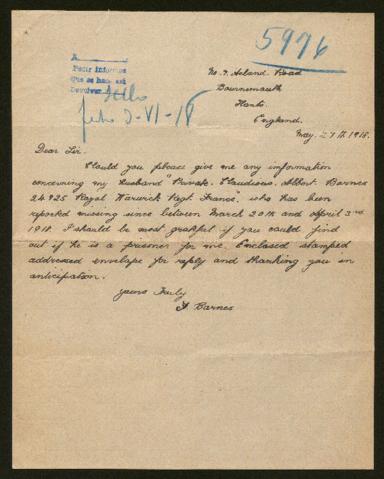 5976
A
Pedir informes
que se han así
Devolver
Fecho 3-VI-18
No. 7. Acland. Road
Bournemouth
Hants.
England.
May. 27th 1918.
Dear Sir.
Would you please give me any information
concerning my husband "Private. Claudious. Albert. Barnes
24925 Royal Warwick Regt. France", who has been
reported missing since between March 20th and April 3rd
1918. I should be most grateful if you could find
out if he is a prisoner for me. Enclosed stamped
addressed envelope for reply and thanking you in
anticipation.
Yours Truly
Barnes